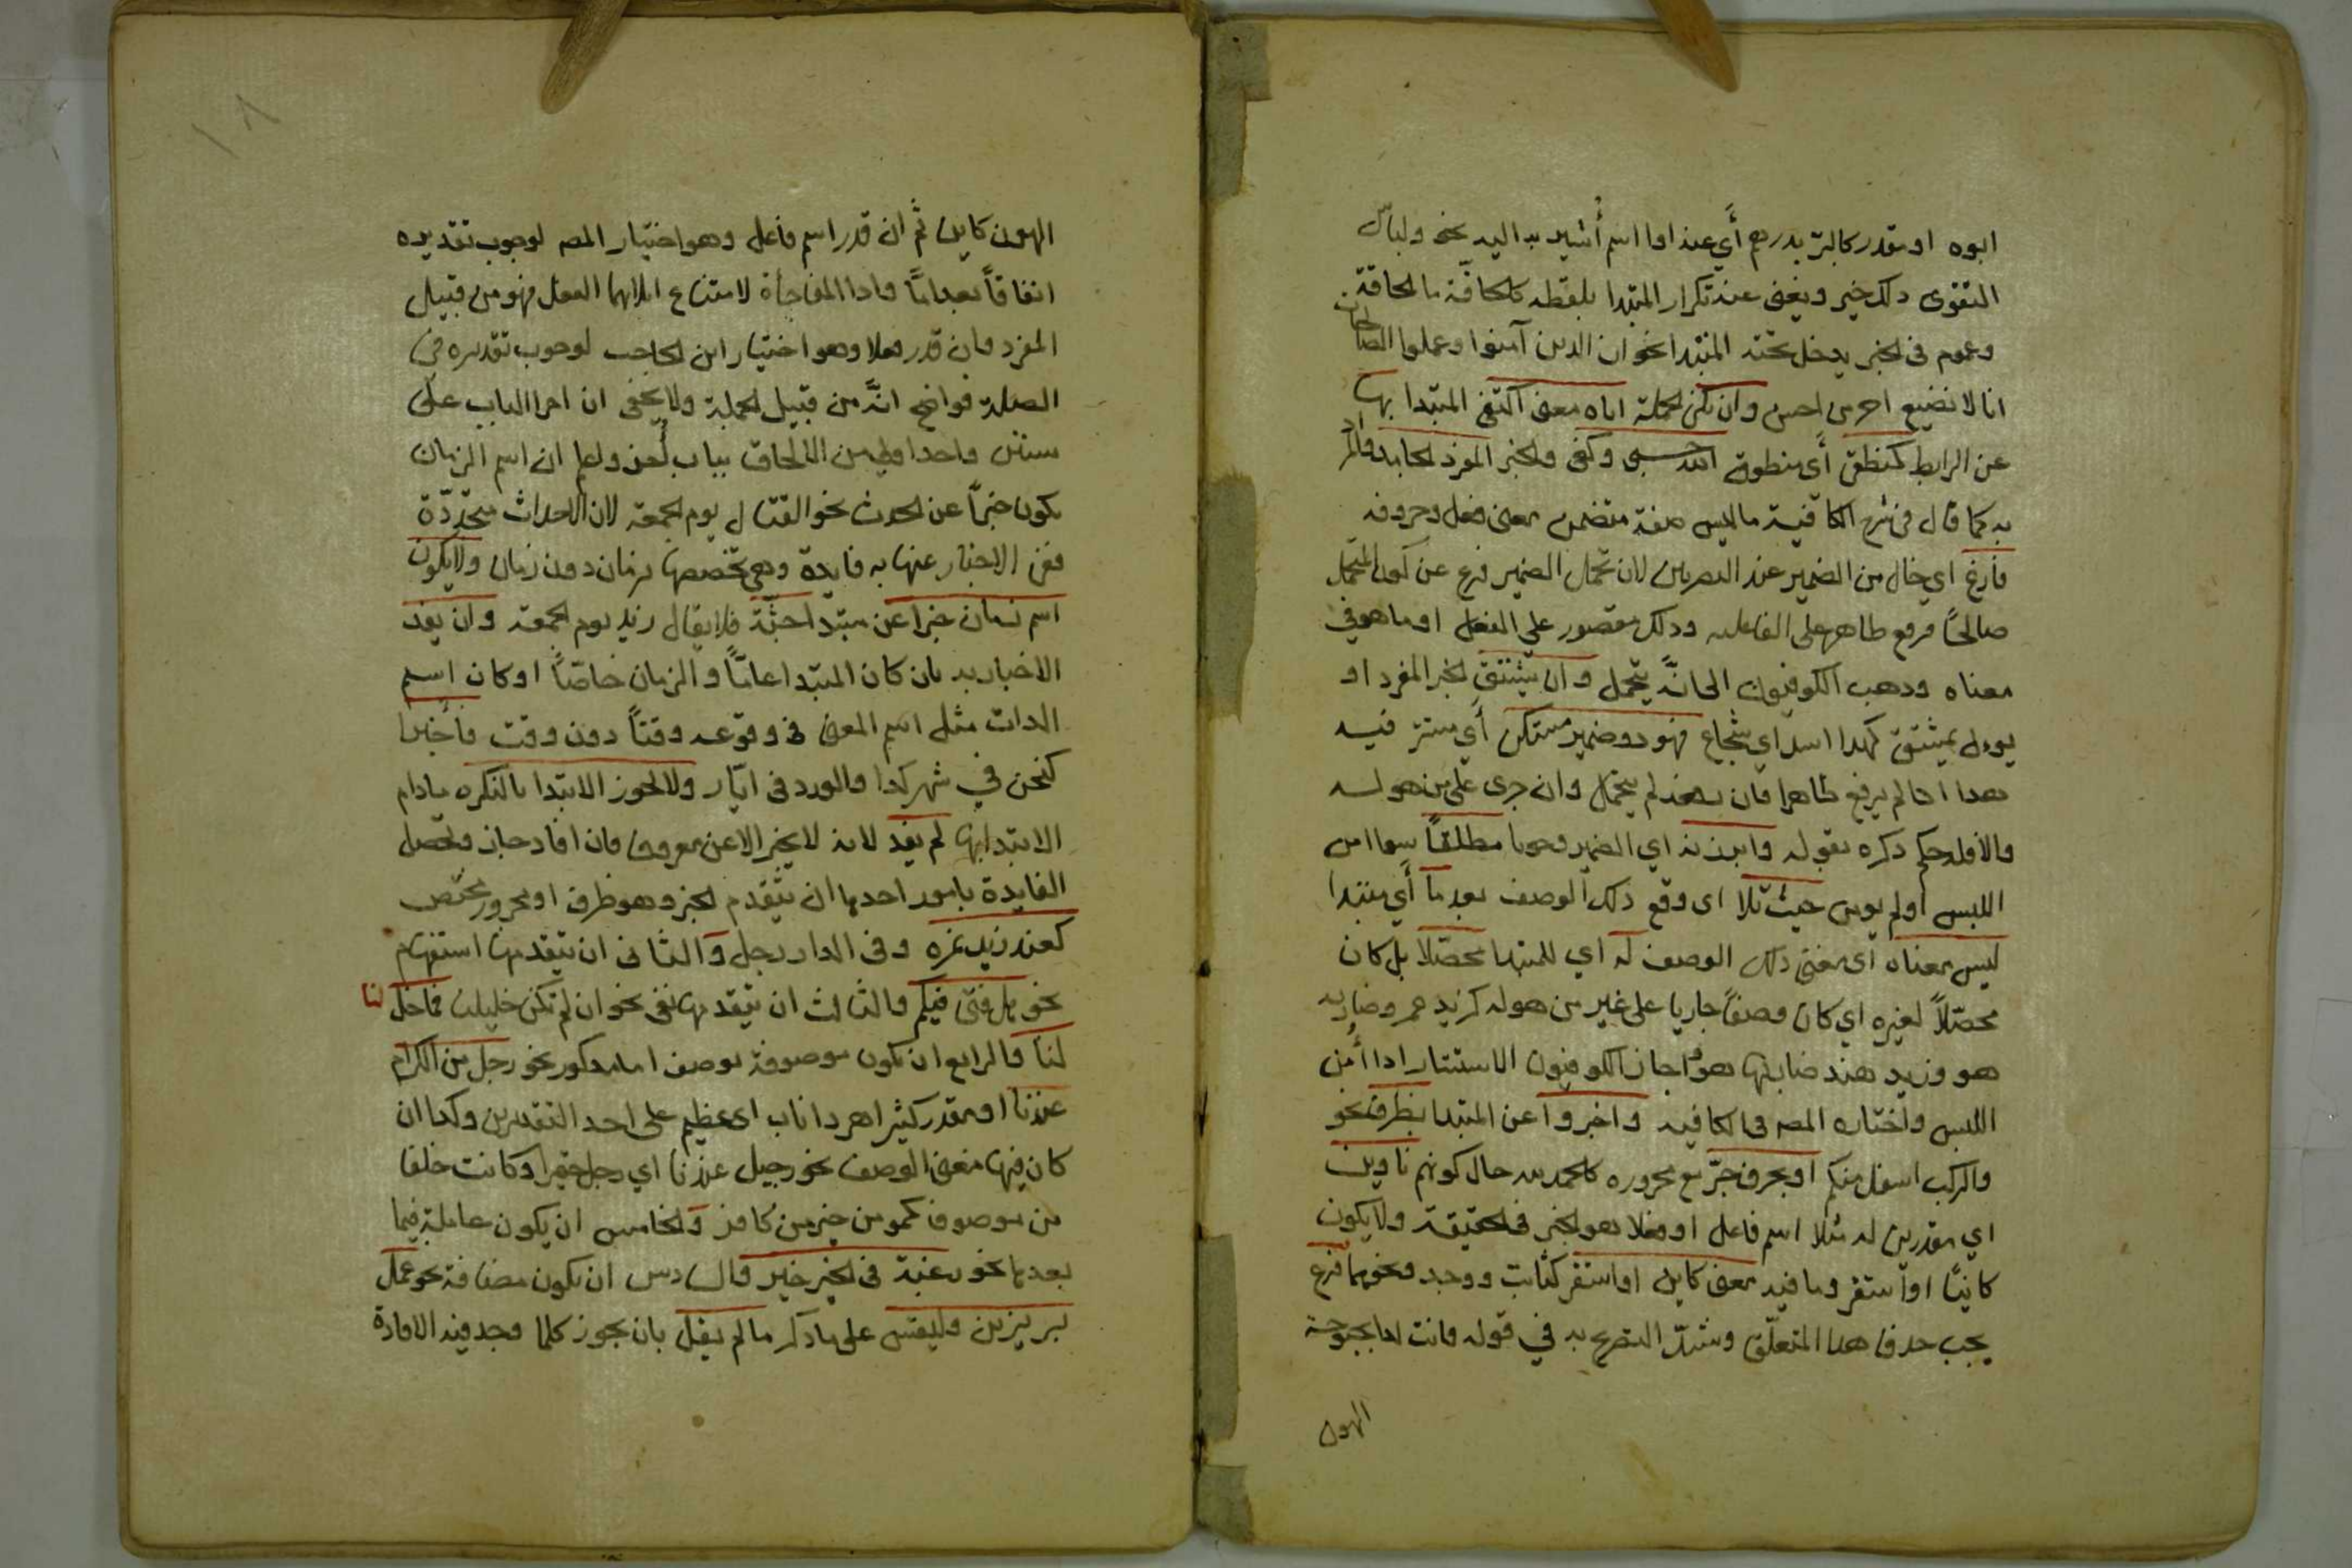 ابوه او مقدر كالبرّ بدرهم أي عندا وا اسم أشير به اليه نحو ولباس
التقوى ذلك خير ويغني عنه تكرار المبتدا بلفظه كالحاقّة ما الحاقة
وعموم في الخبر يدخل تحته المبتدا نحو ان الذين آمنوا وعملوا الصالحات
انا لا نضيع اجر من احسن وان تكن الجملة اياه معنى اكتفى المبتدا بها
عن الرابط كنطقي أي منطوقي الله حسبي وكفى والخبر المفرد الجامد والمراد
به كما قال في شرح الكافية ما ليس صفة متضمن معنى فعل وحروفه
فارغ اي خال من الضمير عند البصريين لان تحمل الضمير فرع عن كون المتحمل
صالحًا لرفع ظاهر على الفاعليه وذلك مقصور على الفعل او ما هو في
معناه وذهب الكوفيون الى انَّه يتحمل وان يشتق الخبر المفرد او
يوول بمشتق كهذا اسد اي شجاع فهو ذو ضمير مستكن أي مستتر فيه
هذا اذا لم يرفع ظاهرا فان رفعه لم يتحمل وان جرى على من هو له
والا فله حكم ذكره بقوله وابرزنه اي الضمير وجوبا مطلقاً سوا امن
اللبس اولم يومن حيث تلا اي وقع ذلك الوصف بعد ما أي مبتدا
ليس معناه اي معنى ذلك الوصف له اي للمبتدا محصّلا بل كان
محصّلاً لغيره اي كان وصفاً جاريا على غير من هو له كزيد عمرو ضاربه
هو وزيد هند ضاربها هو واجاز الكوفيون الاستتار اذا أمن
اللبس واختاره المصه في الكافيه واخبروا عن المبتدا بظرف نحو
والركب اسفل منكم او بحرف جرّ مع مجروره كالحمد لله حال كونهم ناوين
اي مقدرين له مثلا اسم فاعل او فعلا هو الخبر في الحقيقة ولا يكون
كائنًا او استقر وما فيه معنى كاين او استقر كثابت ووجد ونحوهما فرع
يجب حذف هذا المتعلّق وشذّ التصريح به في قوله فانت لدى بحبوحة
الهون
١٨
الهون كاين ثم ان قدر اسم فاعل وهو اختيار المصه لوجوب تقديره
اتفاقاً بعد امّا واذا المفاجأة لامتناع ايلائهما الفعل فهو من قبيل
المفرد وان قدر فعلا وهو اختيار ابن الحاجب لوجوب تقديره في
الصلة فواضح انّه من قبيل الجملة ولا يخفى ان اجرا الباب على
سنن واحد اولى من الالحاق بباب أخر واعلم ان اسم الزمان
يكون خبراً عن الحدث نحو القتال يوم الجمعة لان الاحداث متجددّة
ففي الاخبار عنها به فايدة وهي تخصصها بزمان دون زمان ولا يكون
اسم زمان خبرا عن مبتدا جثّة فلا يقال زيد يوم الجمعة وان يفد
الاخبار به بان كان المبتدا عامّاً والزمان خاصّاً او كان اسم
الذات مثل اسم المعنى في وقوعه وقتاً دون وقت فأخبرا
كنحن في شهر كذا والورد في ايّار ولا يجوز الابتدا بالنكره مادام
الابتدا بها لم يفد لانه لا يخبر الا عن معروف فان افاد جاز وتحصل
الفايدة بامور احدها ان يتقدم الخبر وهو ظرف او مجرور مختص
كعند زيد نمره وفي الدار رجل والثاني ان يتقدمها استفهام
نحو هل فتى فيكم والثالث ان يتقدمها نفي نحو ان لم تكن خليلنا فما خل لنا
لنا والرابع ان تكون موصوفة بوصف اما مذكور نحو رجل من الكرام
عندنا او مقدر كشر اهر ذا ناب اي عظيم على احد التقديرين وكذا ان
كان فيها معنى الوصف نحو رجيل عندنا اي رجل حقير او كانت خلفا
من موصوف كمومن خير من كافر والخامس ان يكون عاملة فيما
بعدها نحو رغبة في الخير خير والسادس ان تكون مضافة نحو عمل
بر يزين وليقس على ما ذكر ما لم يقل بان يجوز كلما وجد فيه الافادة